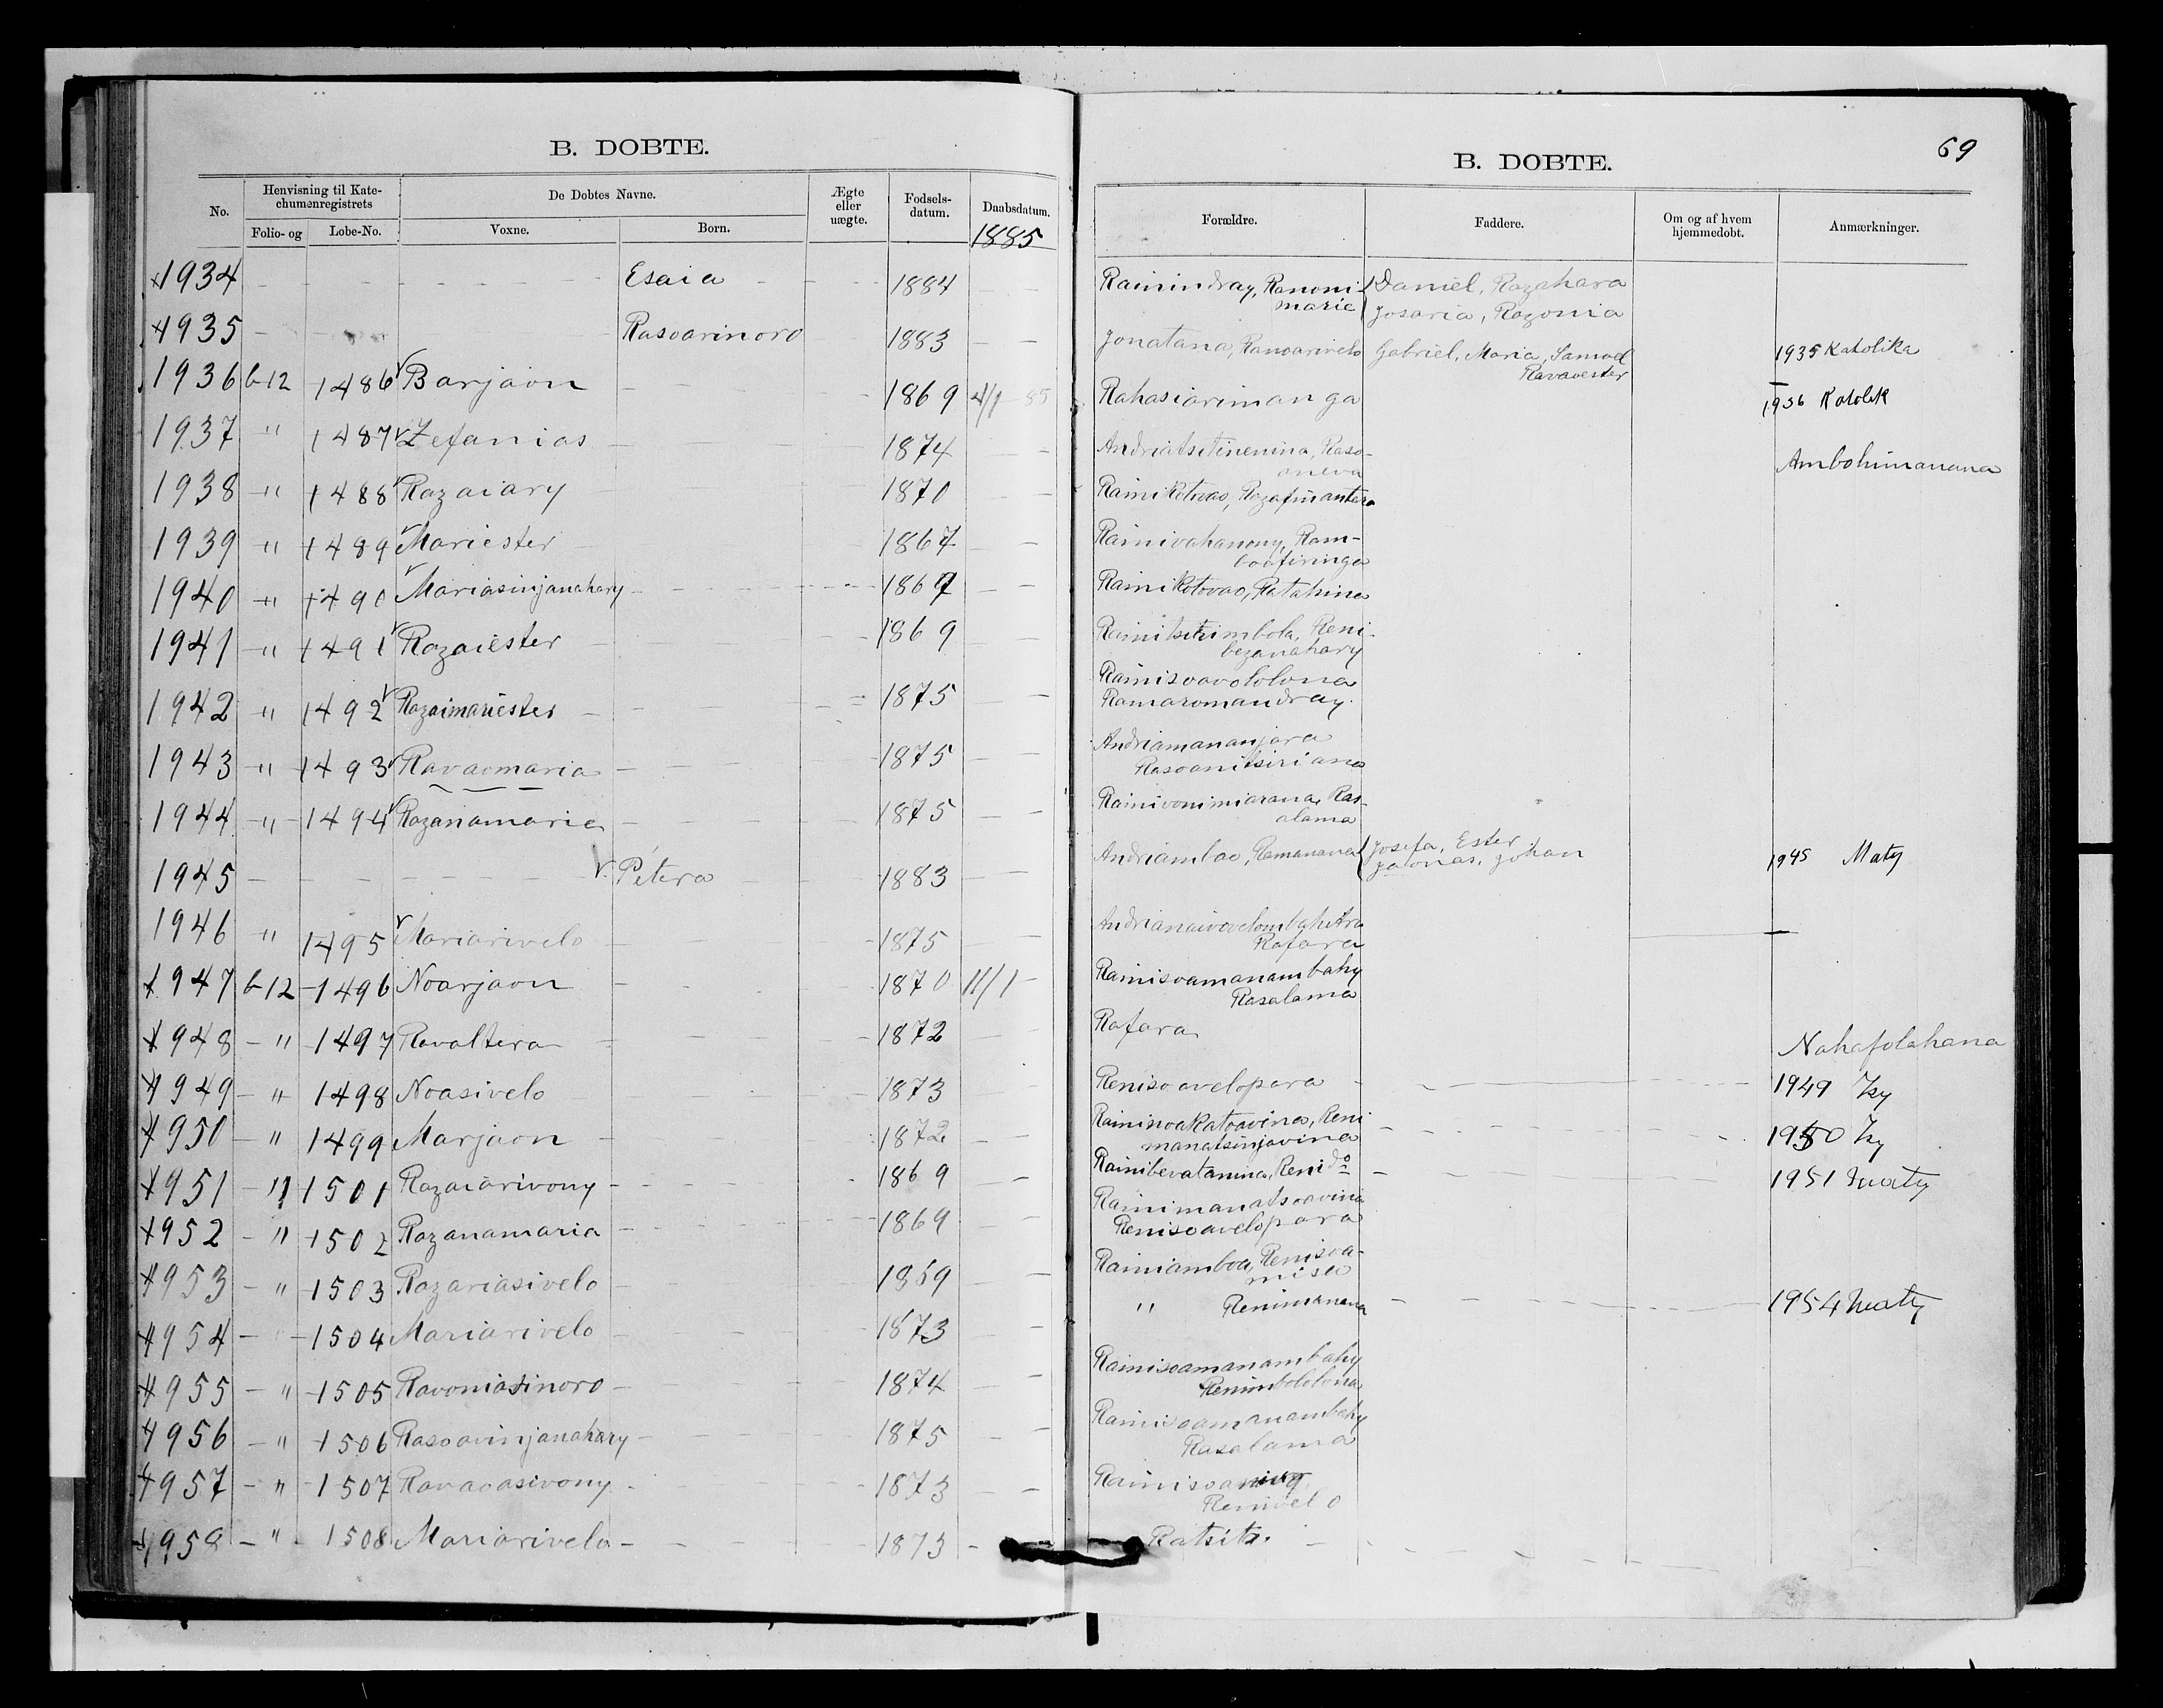 B. DOBTE.
No. Henvisning til Kate-chumenregistrets De Dobtes Navne. Ægte eller uægte. Fodsels-datum. Daabsdatum.
Folio- og Lobe-No. Voxne. Born. 1885
1934 Esaia 1884
1935 Rasoarinoro 1883
1936 b 12 1486 Barjaon 1869 4/1 85
1937 " 1487 Zefanias 1874
1938 " 1488 Razaiary 1870
1939 " 1489 Mariester 1867
1940 " 1490 Mariasinjanahary 1867
1941 " 1491 Razaiester 1869
1942 " 1492 Razaimariester 1875
1943 " 1493 Ravaomaria 1875
1944 " 1494 Razanamaria 1875
1945 Petera 1883
1946 " 1495 Mariarivelo 1875
1947 b 12 1496 Noarjaon 1870 11/1
1948 " 1497 Ravaltera 1872
1949 " 1498 Noasivelo 1873
1950 " 1499 Marjaon 1872
1951 " 1501 Razaiarivony 1869
1952 " 1502 Razanamaria 1869
1953 " 1503 Razariasivelo 1869
1954 " 1504 Mariarivelo 1873
1955 " 1505 Ravoniasinoro 1874
1956 " 1506 Rasoavinjanahary 1875
1957 " 1507 Ravaoasivony 1873
1958 " 1508 Mariarivelo 1873
69
B. DOBTE.
Forældre. Faddere. Om og af hvem hjemmedobt. Anmærkninger.
Rainindray, Ranoni- Daniel, Razahara
marie Josaria, Razonia
Jonatana, Ranoarivelo Gabriel, Maria, Samuel 1935 Katolika
Ravaoester
Rahasiarimanga 1936 Katolik
Andriatsitinenina, Raso-
aneva Ambohimanana
Rainikotovao, Razafinantera
Rainivahanony, Ram-
boafiringa
Rainikotovao, Ratahina
Rainitsitrimbola, Reni-
bezanahary
Rainisoavololona
Ramaromandray.
Andriamananjara
Rasoanitsiriana
Rainivonimiarana, Ras-
alama
Andriambao, Ramanana Josefa, Ester
Jaonas, Johan 1945 Maty
Andrianaivovelombahitra
Rafara
Rainisoamanambahy
Rasalama
Rafara Nahafolahana
Renisoavelopara 1949 Izy
Raininoakatoavina, Reni
manatsinjavina 1950 Izy
Rainibevatanina, Reni do 1951 Maty
Rainimanatsoavina
Renisoavelopara
Rainiamboa, Renisoa-
misa
" Renimanana 1954 Maty
Rainisoamanambahy
Renimbololona
Rainisoamanambahy
Rasalama
Renivelo
Ratsito.